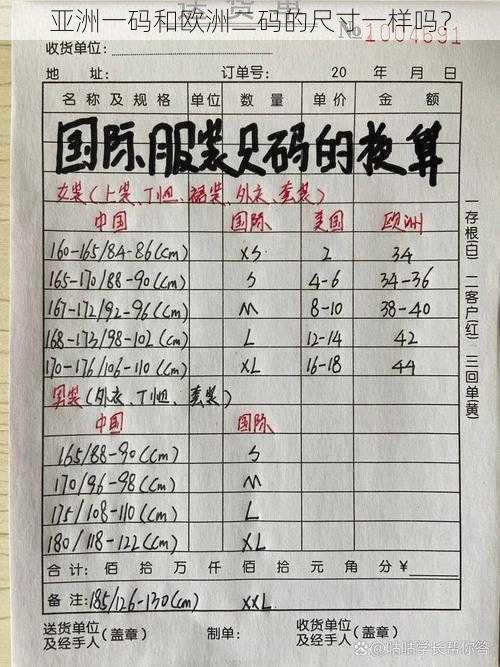 亚洲一码和欧洲二码的尺寸一样吗?
送货单
收货单位: No 1004691
地址: 订单号: 20 年 月 日
名称及规格 单位 数量 单价 金额
国际服装尺码的换算
女装(上装、T恤、裙装、外衣、套装)
中国 国际 美国 欧洲
160-165/84-86(cm) XS 2 34
165-170/88-90(cm) S 4-6 34-36
167-172/92-96(cm) M 8-10 38-40
168-173/98-102(cm) L 12-14 42
170-176/106-110(cm) XL 16-18 44
男装(外衣、T恤、套装)
中国 国际
165/88-90(cm) S
170/96-98(cm) M
175/108-110(cm) L
180/118-122(cm) XL
合计: 佰 拾 万 仟 佰 拾 元 角 分 ¥
备注: 185/126-130(cm) XXL
送货单位及经手人(盖章) 制单: 收货单位及经手人(盖章)
一存根(白) 二客户(红) 三回单(黄)